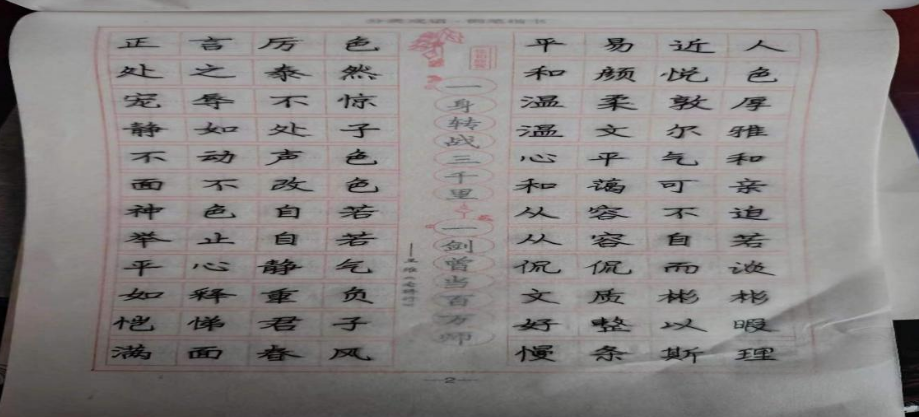 正言厉色
处之泰然
宠辱不惊
静如处子
不动声色
面不改色
神色自若
举止自若
平心静气
如释重负
恺悌君子
满面春风
一身转战三千里
一剑曾当百万师
平易近人
和颜悦色
温柔敦厚
温文尔雅
心平气和
和蔼可亲
从容不迫
从容自若
侃侃而谈
文质彬彬
好整以暇
慢条斯理
—2—